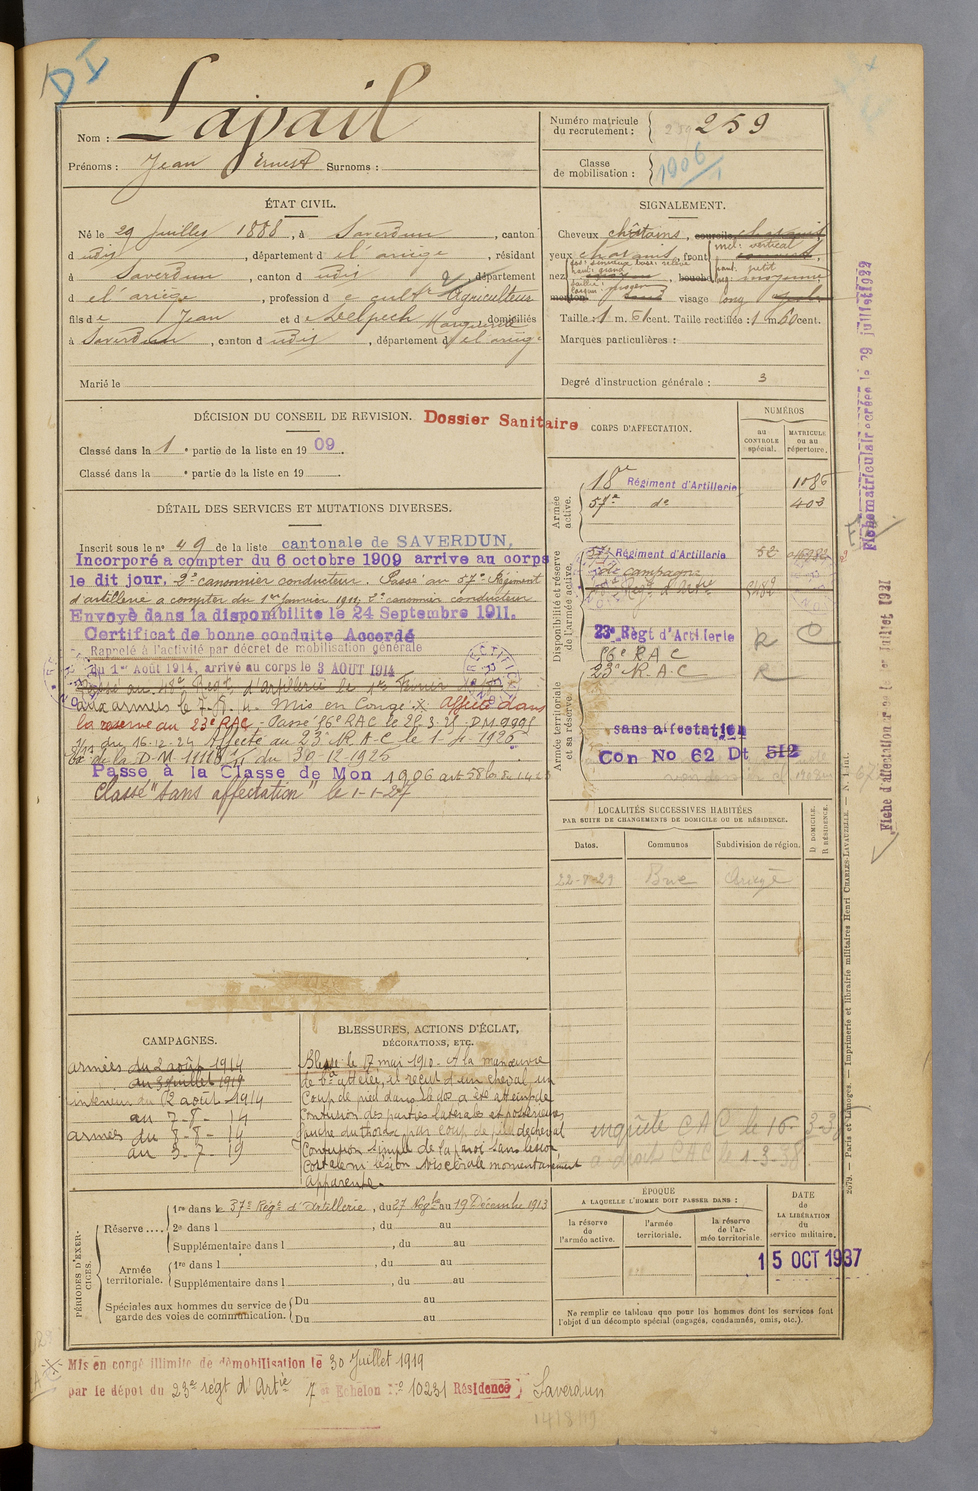 DI
Nom : Lapail
Prénoms : Jean Ernest Surnoms :
Numéro matricule du recrutement : 259
Classe de mobilisation : 1906
ÉTAT CIVIL.
Né le 29 juillet 1888, à Saverdun, canton
d udis, département d e l'ariège, résidant
à Saverdun, canton d udis, département
d e l'ariège, profession d e cult agriculteur
fils de Jean et de Delpech Marguerite domiciliés
à Saverdun, canton d udis, département d e l'ariège
Marié le
SIGNALEMENT.
Cheveux châtains, sourcils
yeux châtains, front incl: vertical
nez dos: sinueux base: relevé haut: grand, bouche
menton visage long
Taille : 1 m. 61 cent. Taille rectifiée : 1 m. 60 cent.
Marques particulières :
Degré d'instruction générale : 3
DÉCISION DU CONSEIL DE REVISION. Dossier Sanitaire
Classé dans la 1e partie de la liste en 1909.
Classé dans la e partie de la liste en 19
CORPS D'AFFECTATION.
NUMÉROS
au CONTROLE spécial.
MATRICULE ou au répertoire.
Armée active.
18e Régiment d'Artillerie 1086
57e de 403
Disponibilité et réserve de l'armée active.
57e Régiment d'Artillerie 52
de campagne
23e Régt d'Artillerie R
Armée territoriale et sa réserve.
56e R A C
23e R. A. C R
sans affectation
Con No 62 Dt 512
DÉTAIL DES SERVICES ET MUTATIONS DIVERSES.
Inscrit sous le no 49 de la liste cantonale de SAVERDUN,
Incorporé a compter du 6 octobre 1909 arrive au corps
le dit jour. 2e canonnier conducteur. Passé au 57e Régiment
d'artillerie a compter du 1er Janvier 1911, 2e canonnier conducteur
Envoyé dans la disponibilité le 24 Septembre 1911.
Certificat de bonne conduite Accordé
Rappelé à l'activité par décret de mobilisation générale
du 1er Août 1914, arrivé au corps le 3 AOUT 1914
Passé au 18e Régt d'artillerie le 1er Février
aux armées le 7-8-14. Mis en Congé X affecté dans
la réserve au 23e RAC - Passé 56e RAC le 25.3.21 - D.M.
du 16-12-24 Affecté au 23e R.A.C le 1-4-1925
de la D.M. du 30-12-1925
Passé à la Classe de Mon 1906 art 58
Classé "sans affectation" le 1-1-27
LOCALITÉS SUCCESSIVES HABITÉES
PAR SUITE DE CHANGEMENTS DE DOMICILE OU DE RÉSIDENCE.
Dates. Communes Subdivision de région. D DOMICILE. R RÉSIDENCE.
22-7-29 Brie Ariège
CAMPAGNES.
armées du 2 août 1914
au 3 juillet 1919
intérieur du 2 août 1914
au 7-8-14
armées du 8-8-14
au 3-7-19
BLESSURES, ACTIONS D'ÉCLAT,
DÉCORATIONS, ETC.
Blessé le 17 mai 1910. A la manœuvre
de bie attelée, il reçut d'un cheval un
Coup de pied dans le dos a été atteint de
Contusion des parties latérales et postérieures
gauche du thorax par coup de pied de cheval
Contusion simple de la paroi sans lésion
Costale ni lésion viscérale momentanément
apparente.
enquête CAC le 16-3-3
a droit CAC le 1-3-38
PÉRIODES D'EXERCICES.
Réserve .... 1re dans le 57e Régt d'artillerie, du 27 Nov. au 19 Décembre 1913
2e dans l , du au
Supplémentaire dans l , du au
Armée territoriale. 1re dans l , du au
Supplémentaire dans l , du au
Spéciales aux hommes du service de garde des voies de communication. Du au
Du au
ÉPOQUE
A LAQUELLE L'HOMME DOIT PASSER DANS :
la réserve de l'armée active.
l'armée territoriale.
la réserve de l'armée territoriale
DATE de LA LIBÉRATION du service militaire.
15 OCT 1937
Ne remplir ce tableau que pour les hommes dont les services font
l'objet d'un décompte spécial (engagés, condamnés, omis, etc.).
Mis en congé illimité de démobilisation le 30 Juillet 1919
par le dépôt du 23e régt d'Artie 7e Echelon No 10231 Résidence Saverdun
Fiche matriculaire créée le 29 juillet 1929
Fiche d'affectation juillet 1931
2079. — Paris et Limoges. — Imprimerie et librairie militaires Henri CHARLES-LAVAUZELLE. — N. 1 int.